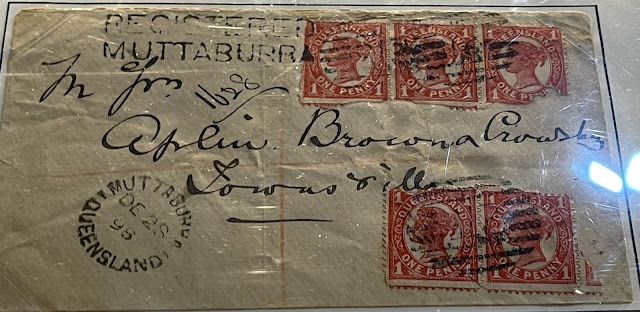 REGISTERED
MUTTABURRA
QUEENSLAND
1 ONE PENNY 1
QUEENSLAND
1 ONE PENNY 1
QUEENSLAND
1 ONE PENNY 1
1628
Aplin Brown & Crowshay
Townsville
MUTTABURRA
DE 28
QUEENSLAND
QUEENSLAND
1 ONE PENNY 1
QUEENSLAND
1 ONE PENNY 1